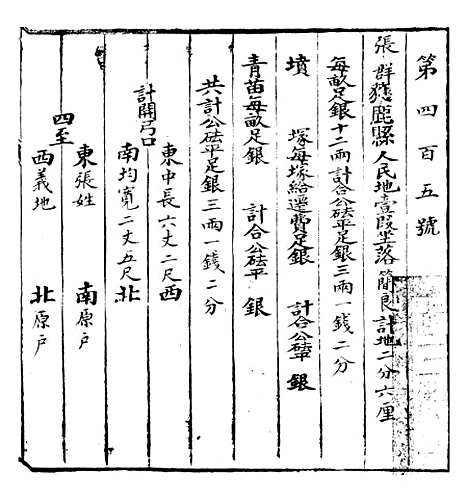 第四百五號
張群獲鹿縣人民地壹段坐落簡良計地二分六厘
每畝足銀十二兩計合公砝平足銀三兩一錢二分
墳 塚每塚給遷費足銀 計合公砝平 銀
青苗每畝足銀 計合公砝平 銀
共計公砝平足銀三兩一錢二分
計開弓口
東中長六丈二尺西
南均寬二丈五尺北
四至
東張姓 南原戶
西義地 北原戶